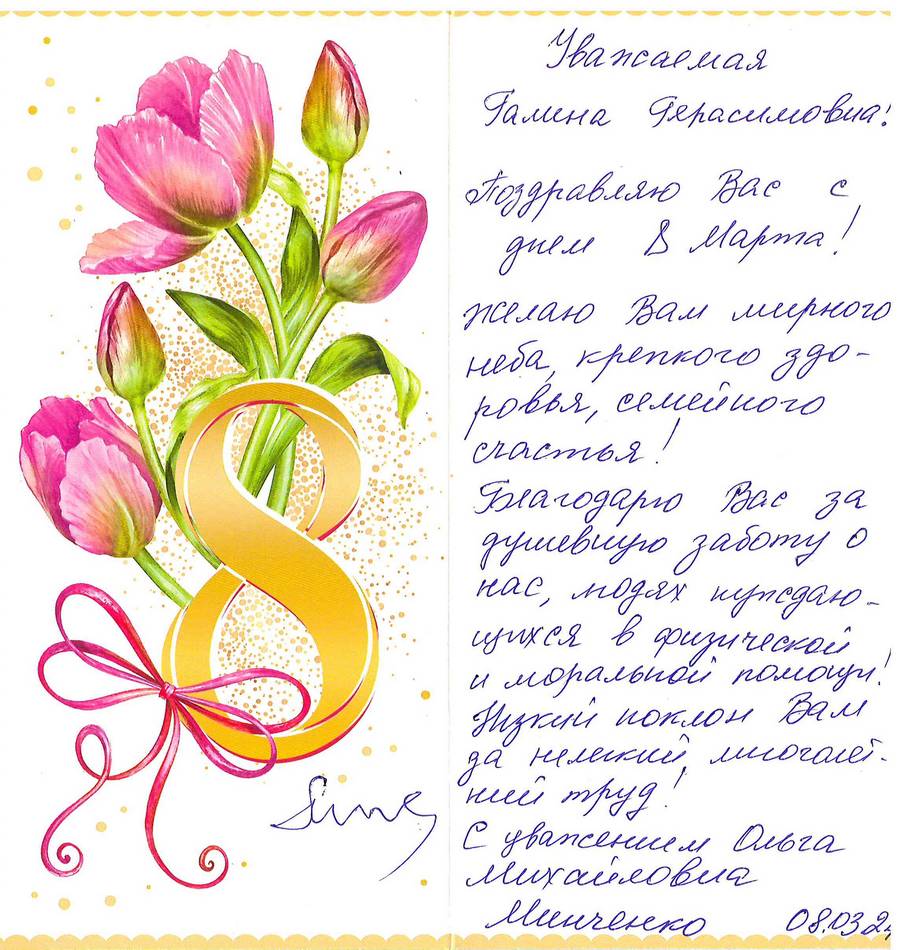 8
Уважаемая
Галина Герасимовна!
Поздравляю Вас с
днем 8 Марта!
Желаю Вам мирного
неба, крепкого здо-
ровья, семейного
счастья!
Благодарю Вас за
душевную заботу о
нас, людях нуждаю-
щихся в физической
и моральной помощи!
Низкий поклон Вам
за нелегкий, многолет-
ний труд!
С уважением Ольга
Михайловна
Минченко 08.03.24